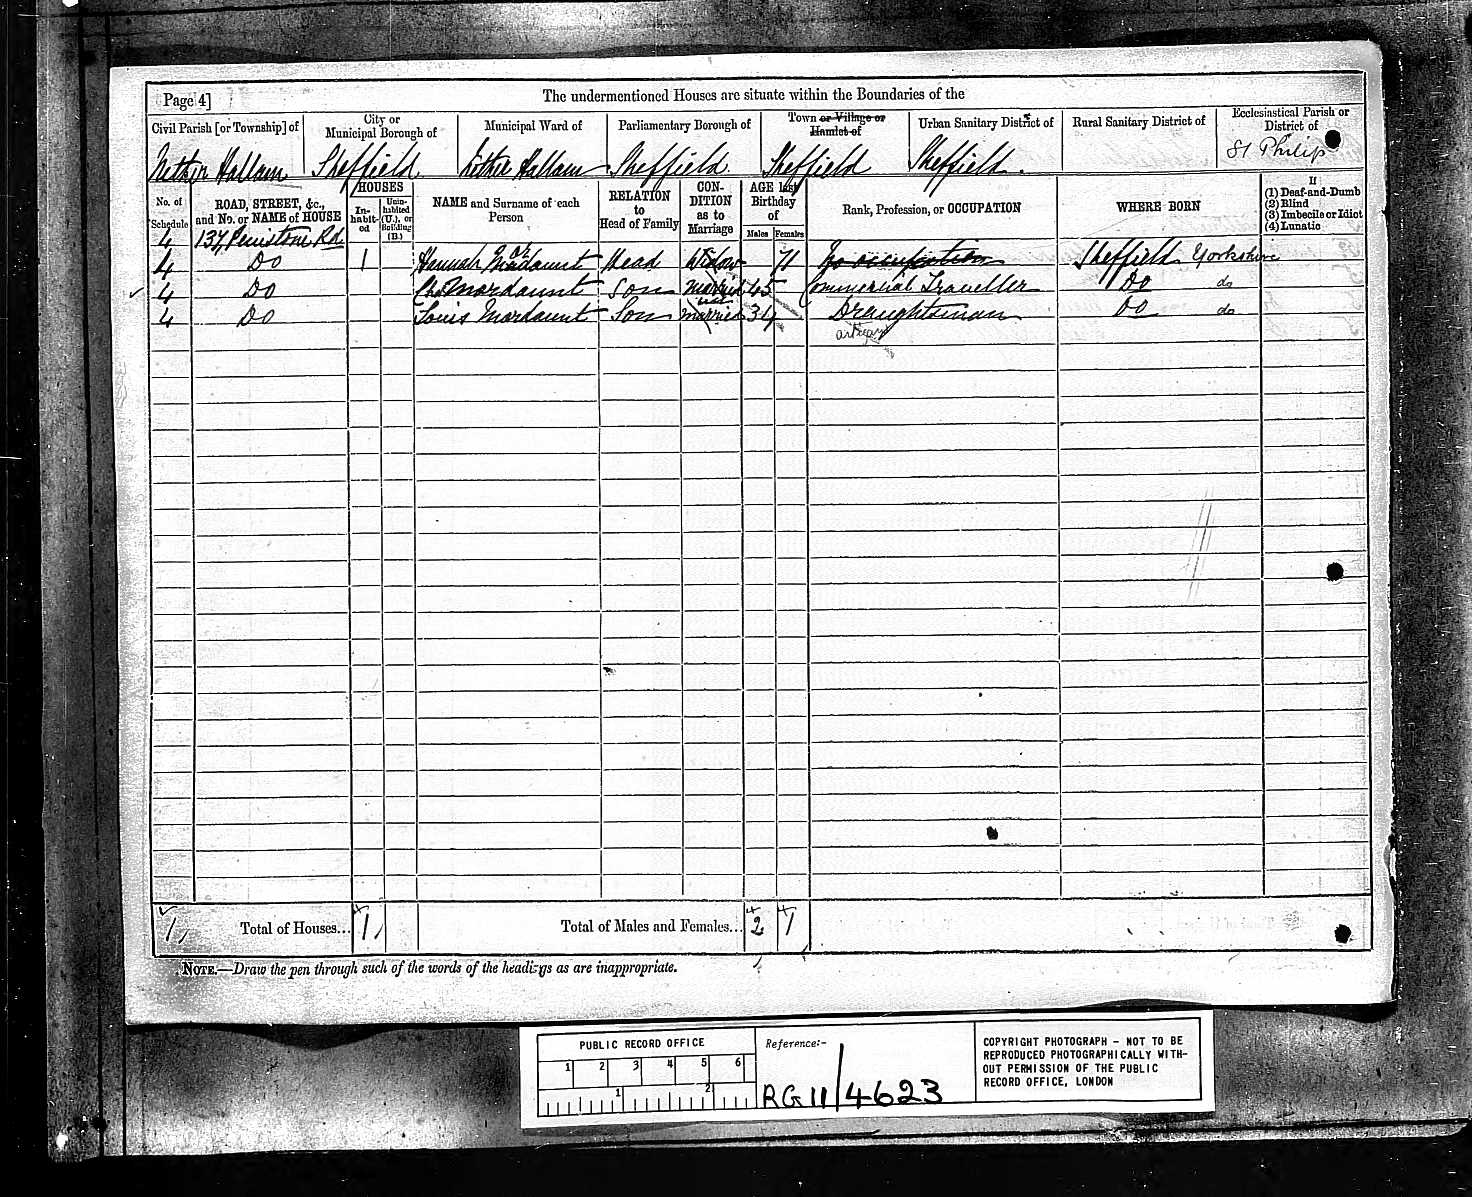 Page 4] The undermentioned Houses are situate within the Boundaries of the
Civil Parish [or Township] of
City or Municipal Borough of
Municipal Ward of
Parliamentary Borough of
Town or Village or Hamlet of
Urban Sanitary District of
Rural Sanitary District of
Ecclesiastical Parish or District of
Nether Hallam Sheffield Nether Hallam Sheffield Sheffield Sheffield. St Philip
No. of Schedule
ROAD, STREET, &c., and No. or NAME of HOUSE
HOUSES
In-habit-ed
Unin-habited (U.), or Building (B.)
NAME and Surname of each Person
RELATION to Head of Family
CON-DITION as to Marriage
AGE last Birthday of
Males Females
Rank, Profession, or OCCUPATION
WHERE BORN
If
(1) Deaf-and-Dumb
(2) Blind
(3) Imbecile or Idiot
(4) Lunatic
4 137 Penistone Rd
4 Do 1 Hannah Mordaunt Head Widow 71 No occupation Sheffield Yorkshire
4 Do Mordaunt Son married 45 Commercial Traveller Do do
4 Do Louis Mordaunt Son married 34 Draughtsman Do do
1 Total of Houses... 1 Total of Males and Females... 2 1
NOTE.—Draw the pen through such of the words of the headings as are inappropriate.
PUBLIC RECORD OFFICE
1 2 3 4 5 6
1 2
Reference:-
RG 11/4623
COPYRIGHT PHOTOGRAPH - NOT TO BE
REPRODUCED PHOTOGRAPHICALLY WITH-
OUT PERMISSION OF THE PUBLIC
RECORD OFFICE, LONDON